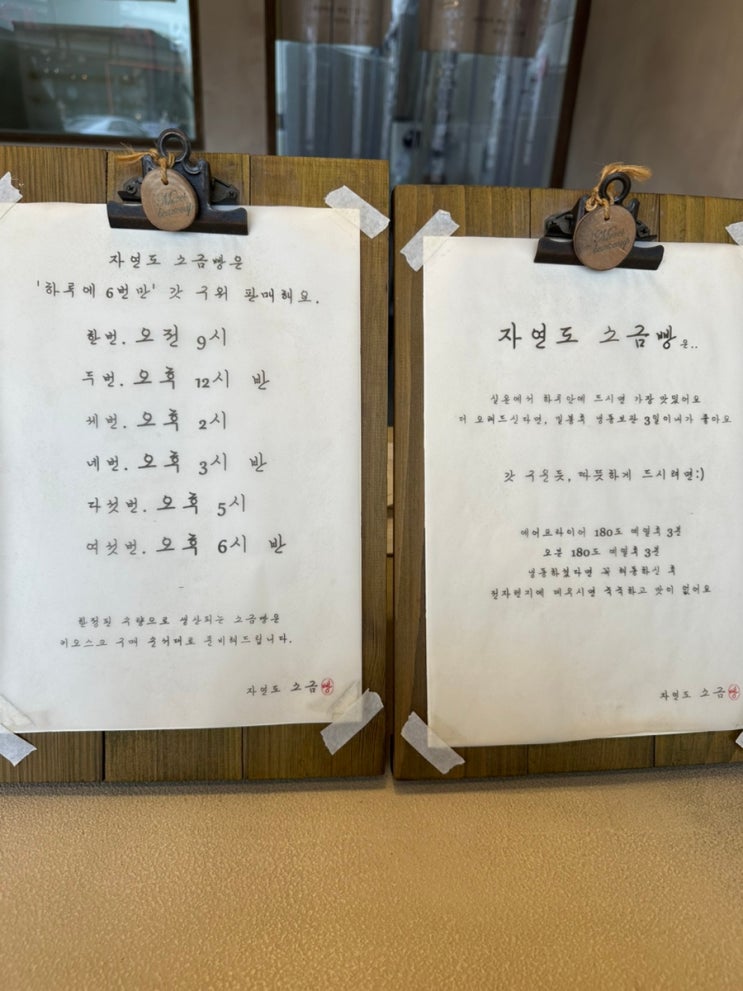 자연도 소금빵은
'하루에 6번만' 갓 구워 판매해요.
한번. 오전 9시
두번. 오후 12시 반
세번. 오후 2시
네번. 오후 3시 반
다섯번. 오후 5시
여섯번. 오후 6시 반
한정된 수량으로 생산되는 소금빵은
키오스크 구매 순서대로 준비해드립니다.
자연도 소금빵
자연도 소금빵은..
실온에서 하루안에 드시면 가장 맛있어요
더 오래드신다면, 밀봉후 냉동보관 3일이내가 좋아요
갓 구운듯, 따뜻하게 드시려면:)
에어프라이어 180도 예열후 3분
오븐 180도 예열후 3분
냉동하셨다면 꼭 해동하신 후
전자렌지에 데우시면 축축하고 맛이 없어요
자연도 소금빵